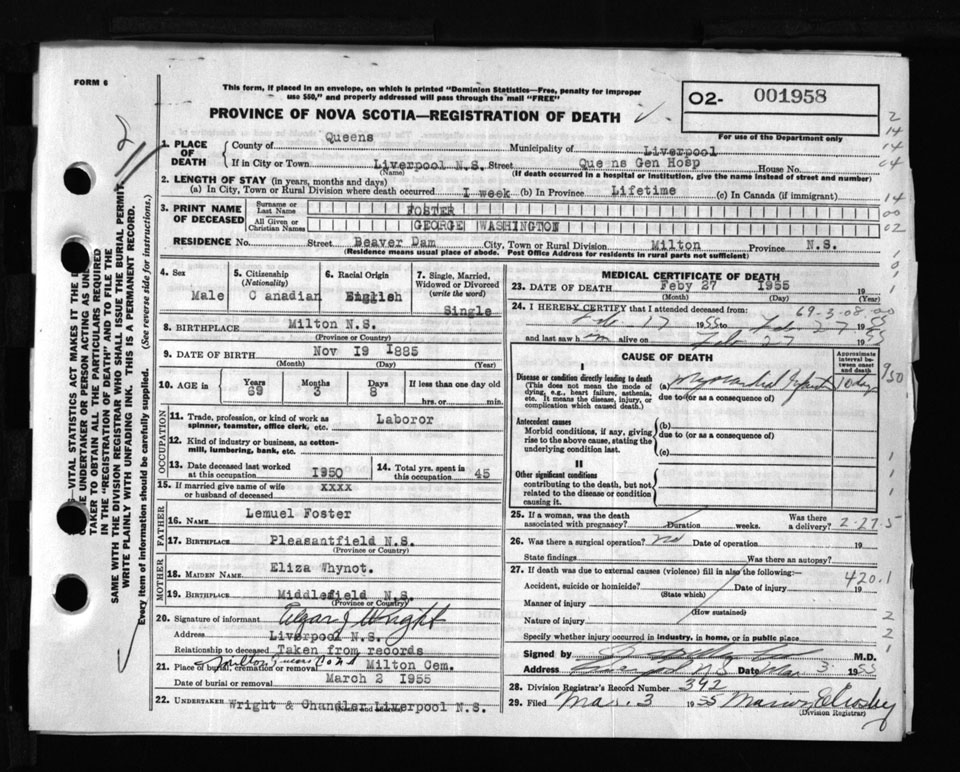 FORM 6
This form, if placed in an envelope, on which is printed "Dominion Statistics—Free, penalty for improper
use $50," and properly addressed will pass through the mail "FREE"
PROVINCE OF NOVA SCOTIA—REGISTRATION OF DEATH
O2- 001958
For use of the Department only
1. PLACE OF DEATH
County of Queens Municipality of Liverpool
If in City or Town Liverpool N.S. Street Queens Gen Hosp House No.
(Name) (If death occurred in a hospital or institution, give the name instead of street and number)
2. LENGTH OF STAY (in years, months and days)
(a) In City, Town or Rural Division where death occurred I week (b) In Province Lifetime (c) In Canada (if immigrant)
3. PRINT NAME OF DECEASED
Surname or Last Name FOSTER
All Given or Christian Names GEORGE WASHINGTON
RESIDENCE No. Street Beaver Dam City, Town or Rural Division Milton Province N.S.
(Residence means usual place of abode. Post Office Address for residents in rural parts not sufficient)
4. Sex Male
5. Citizenship (Nationality) C anadian
6. Racial Origin English
7. Single, Married, Widowed or Divorced (write the word) Single
8. BIRTHPLACE Milton N.S.
(Province or Country)
9. DATE OF BIRTH Nov I9 I885
(Month) (Day) (Year)
10. AGE in Years 69 Months 3 Days 8 If less than one day old
hrs. or min.
OCCUPATION
11. Trade, profession, or kind of work as
spinner, teamster, office clerk, etc. Laboror
12. Kind of industry or business, as cotton-
mill, lumbering, bank, etc.
13. Date deceased last worked
at this occupation I950
14. Total yrs. spent in
this occupation 45
15. If married give name of wife
or husband of deceased xxxx
FATHER
16. NAME Lemuel Foster
17. BIRTHPLACE Pleasantfield N.S.
(Province or Country)
MOTHER
18. MAIDEN NAME Eliza Whynot.
19. BIRTHPLACE Middlefield N.S.
(Province or Country)
20. Signature of informant Wright
Address Liverpool N.S.
Relationship to deceased Taken from records
21. Place of burial, cremation or removal Milton Queens Co N.S. Milton Cem.
Date of burial or removal March 2 I955
22. UNDERTAKER Wright & Chandler Liverpool N.S.
(Name and address)
MEDICAL CERTIFICATE OF DEATH
23. DATE OF DEATH Feby 27 I955 19
(Month) (Day) (Year)
24. I HEREBY CERTIFY that I attended deceased from: 69-3-08
Feb 17 1955 to Feb 27 1955
and last saw him alive on Feb 27 1955
CAUSE OF DEATH
Approximate interval between onset and death
I
Disease or condition directly leading to death
(This does not mean the mode of
dying, e.g., heart failure, asthenia,
etc. It means the disease, injury, or
complication which caused death.)
(a) Myocardial Infarct 10 days
due to (or as a consequence of)
Antecedent causes
Morbid conditions, if any, giving
rise to the above cause, stating the
underlying condition last.
(b)
due to (or as a consequence of)
(c)
II
Other significant conditions
contributing to the death, but not
related to the disease or condition
causing it.
25. If a woman, was the death
associated with pregnancy? Duration weeks. Was there a delivery?
2-27-5
26. Was there a surgical operation? no Date of operation 19
State findings Was there an autopsy?
27. If death was due to external causes (violence) fill in also the following:
420.1
Accident, suicide or homicide? Date of injury 19
(State which)
Manner of injury
(How sustained)
Nature of injury
Specify whether injury occurred in industry, in home, or in public place
Signed by M.D.
Address Liverpool N.S Date Mar 3 1955
28. Division Registrar's Record Number 392
29. Filed Mar. 3 1955 Marion E Crosby
(Division Registrar)
TAKER TO OBTAIN ALL THE PARTICULARS REQUIRED
IN THE "REGISTRATION OF DEATH" AND TO FILE THE
SAME WITH THE DIVISION REGISTRAR WHO SHALL ISSUE THE BURIAL PERMIT.
WRITE PLAINLY WITH UNFADING INK. THIS IS A PERMANENT RECORD.
Every item of information should be carefully supplied. (See reverse side for instructions.)